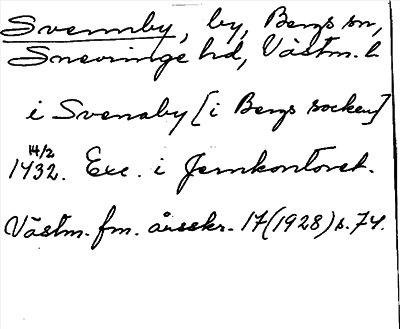 Svennby, by, Bergs sn,
Snevringe hd, Västm. l.
i Svenaby [i Bergs socken]
14/2
1432. Exc. i Jernkontoret.
Västm. fm. årsskr. 17(1928) s. 74.